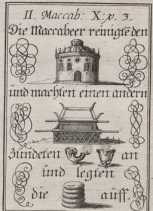 II. Maccab: X. v. 3.
Die Maccabeer reinigten den
und machten einen andern
Zündeten an
und legten
die auff.